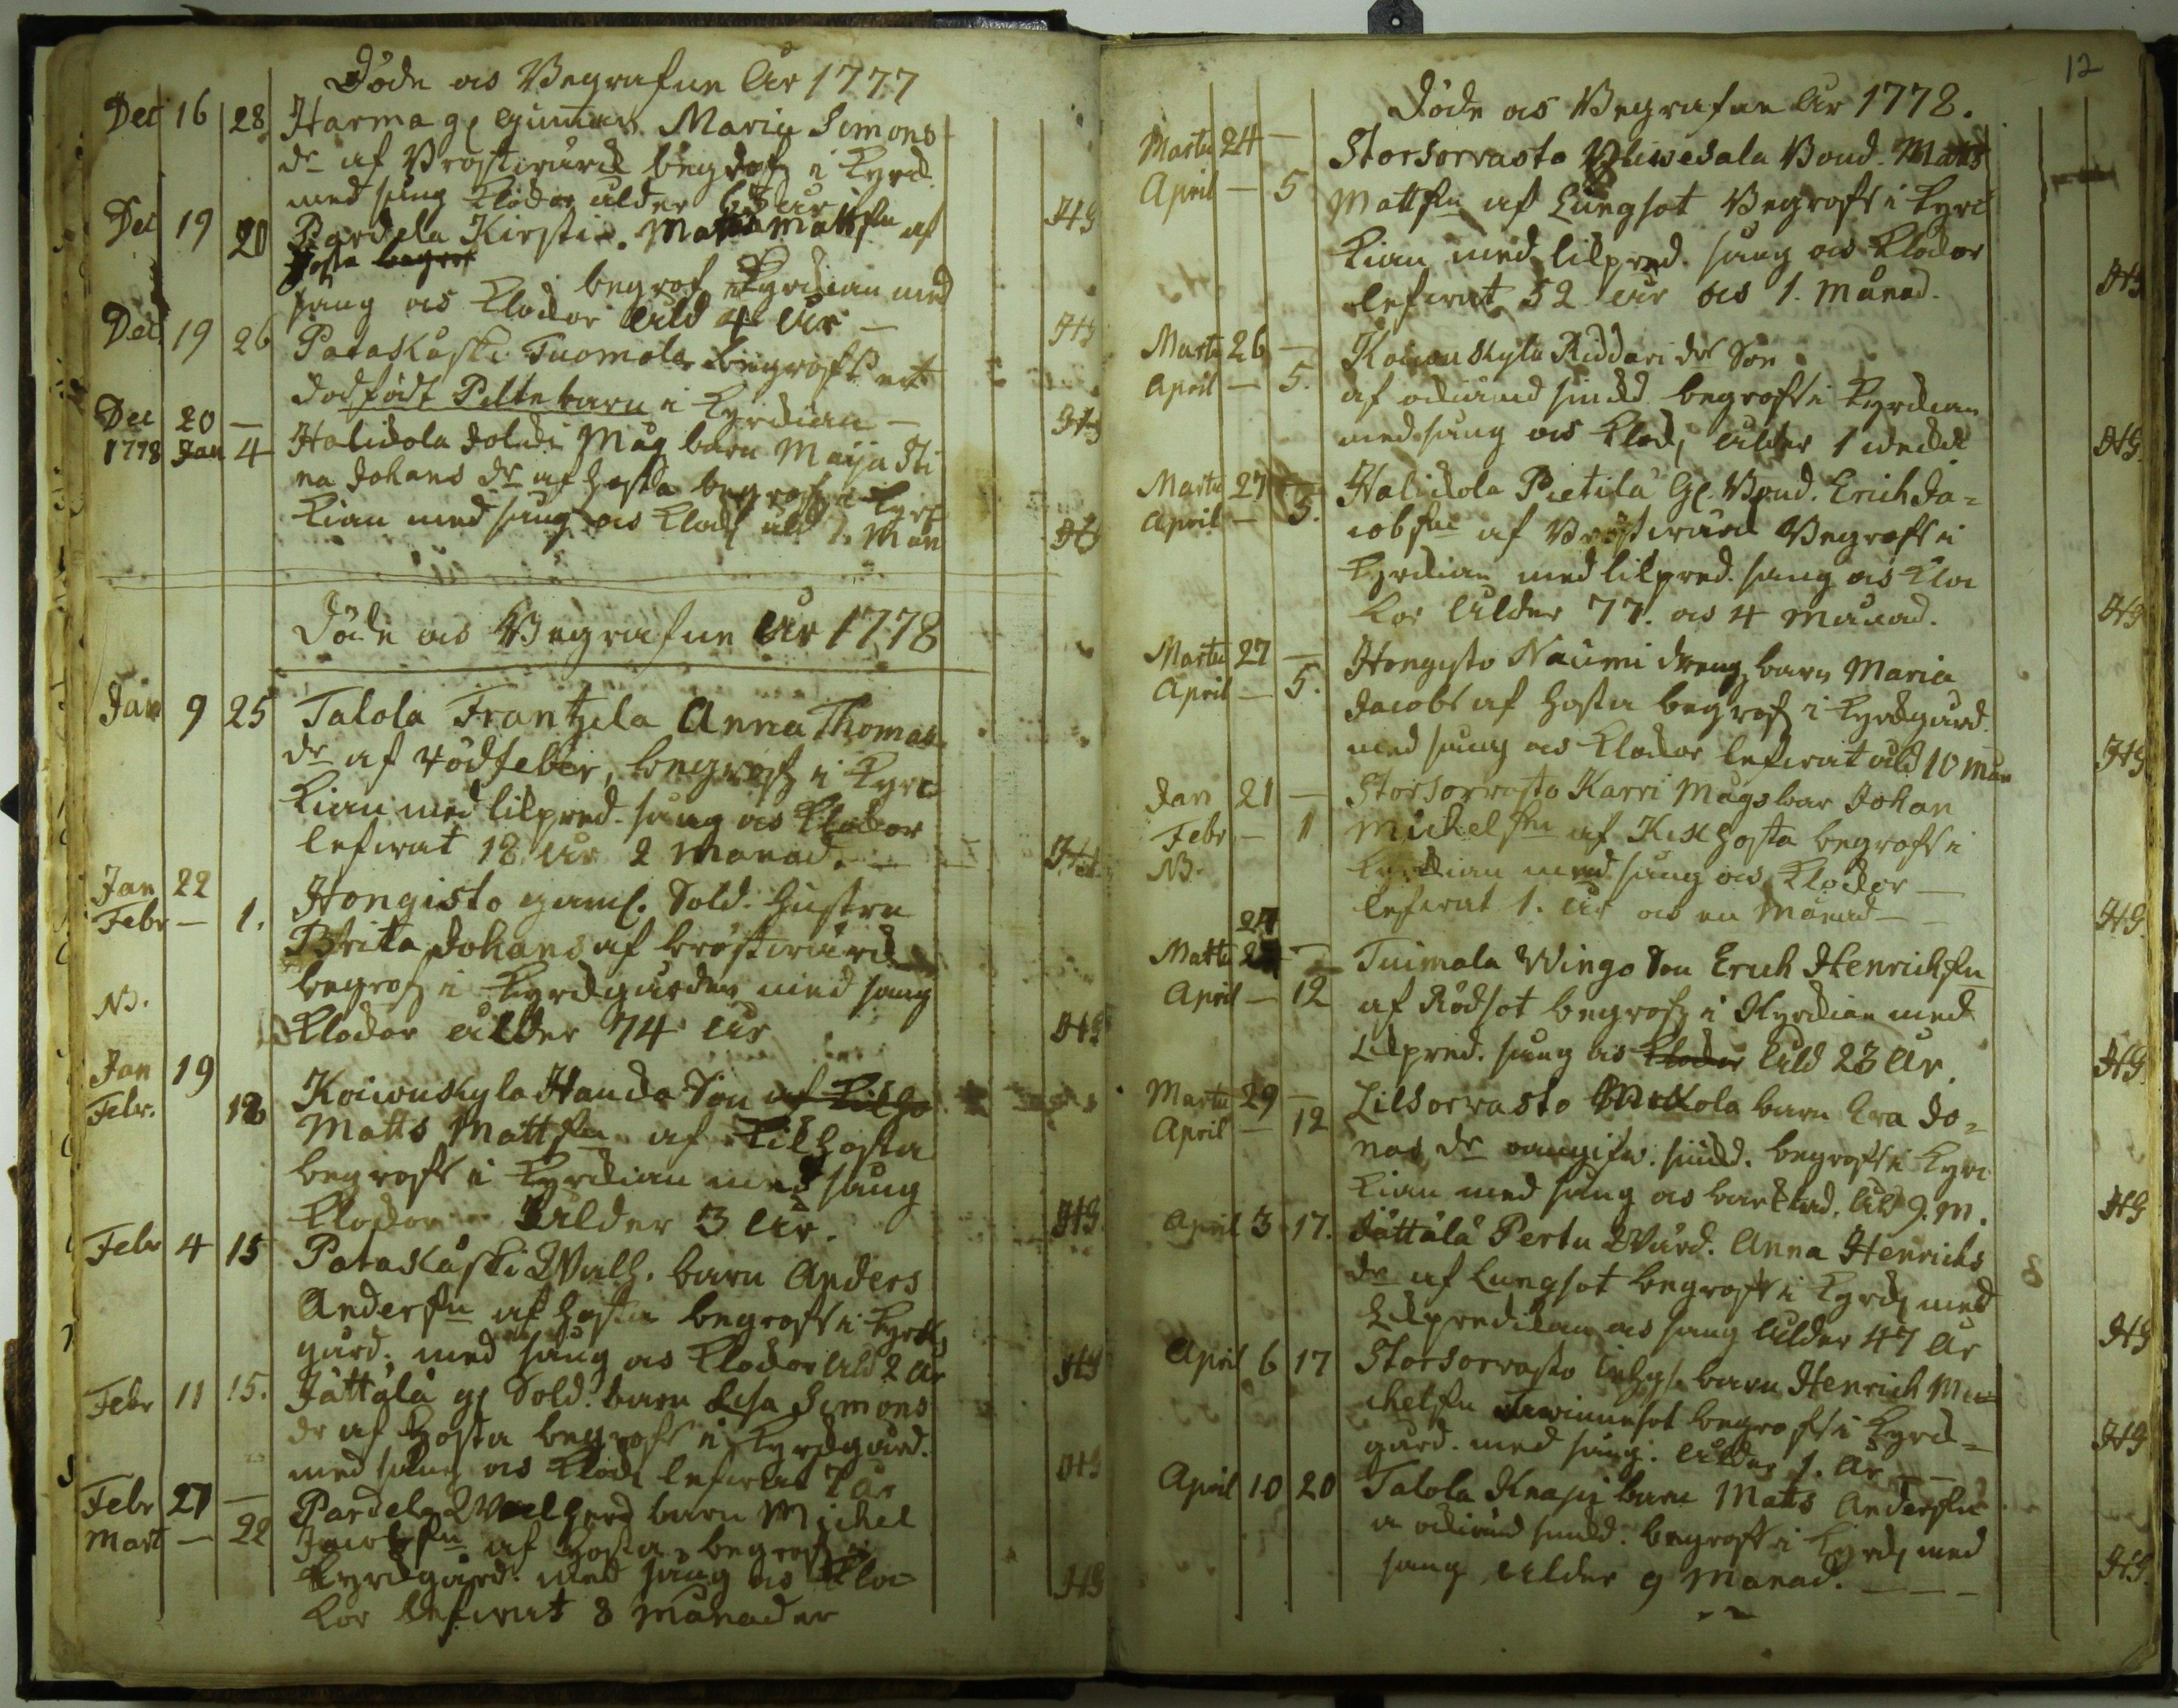 Döde och Begrafne År 1777
Dec 16 28 Harma gl gumman Maria Simons
dr af Bröstwärck begrofz i Kyrck
med sång Klockor ålder 63 år HG
Dec 19 20 Pardela Kirstin Matts Mattssn af
hosta begrof
begrof Kyrckian med
sång och Klockor Åld 4 År HG
Dec 19 26 Pataskåski Tuomola begrofs ett
dödfödt Piltebarn i Kyrckian HG
Dec 20 —
1778 Jan 4 Halickola Måg barn Maija Sti
na Johans dr af hosta begrofz i Kyrc
kian med sång och Klock åld 7. Mån HG
Döde och Begrafne År 1778
Jan 9 25 Talola Frantzila Anna Thomas
dr af rödfeber, begrofz i Kyrc
kian med likpred. sång och Klockor
lefwat 18 År 2 Månad. HG
Jan 22
Febr — 1. Hongisto gaml. Sold. hustru
Brita Johans af bröstwärck
begrofz i Kyrckgården med sång
NB. Klockor ålder 74 år HG
Jan 19
Febr. 12 Koiwuskyla Hanca Son af Kikho
Matts Mattssn af Kikhosta
begrofs i Kyrckian med sång
Klockor Ålder 3 År. HG
Febr 4 15 Pataskåski Wallh. barn Anders
Anderssn af hosta begrofs i Kyrck
gård; med sång och Klockor åld 2 År HG
Febr 11 15. Jättälä gl Sold. barn Lisa Simons
dr af hosta begrofs i Kyrckgård.
med sång och Klock lefwat 7 år HG
Febr 27 —
Mart — 22 Pardela Wallherd barn Michel
Jacobssn af hosta begrofz i
Kyrckgård. med sång och Kloc
kor lefwat 8 Månader HG
12
Döde och Begrafne År 1778.
Martii 24 — Storsorrasto Yliwesala Bond. Matts
April — 5 Mattssn af Lungsot Begrofs i Kyrc
kian med likpred. sång och Klockor
lefwat 52 år och 1. Månad. HG
Martii 26 — Koiwuskyla Riddari drs Son
April — 5. af okiänd siuckd begrofs i Kyrckian
med sång och Klock, ålder 1 weck HG
Martii 27 — Halickola Pietilä Gl. Bond. Erich Ja=
April — 5. cobssn af Bröstwärck Begrofs i
Kyrckian med likpred. sång och Kloc
kor Ålder 77. och 4 Månad. HG
Martii 27 — Hongisto Naumi dreng barn Maria
April — 5. Jacobs af hosta begrofz i Kyrckgård
med sång och Klockor lefwat åld 10 Mån HG
Jan 21 — Storsorrasto Karri Mågs bar Johan
Febr — 1 Michelssn af Kikhosta begrofs i
NB. Kyrckian med sång och Klockor
lefwat 1. År och en Månad HG
24
Martii — Tuimala Wingo Son Erich Henrichssn
April — 12 af Rödsot begrofz i Kyrckian med
Likpred. sång och Klockor Åld 23 År. HG
Martii 29 — Lilsorrasto Mickola barn Eva Jo=
April — 12 nas dr oangifw. siuckd. begrofs i Kyrc
kian med sång och Åld 9. M. HG
April 3 17. Jättälä Pertu Wård. Anna Henrichs
dr af Lungsot begrofs i Kyrck med
Likpredikan och sång ålder 47 År HG
April 6 17 Storsorrasto Inhys. barn Henrich Mi=
chelssn Twinnesot begrofs i Kyrck=
gård. med sång. Ålder 1. År HG
April 10 20 Talola Knapi barn Matts Anderssn
a okiänd siuckd. begrofs i Kyrck med
sång Ålder 9 Månad. HG